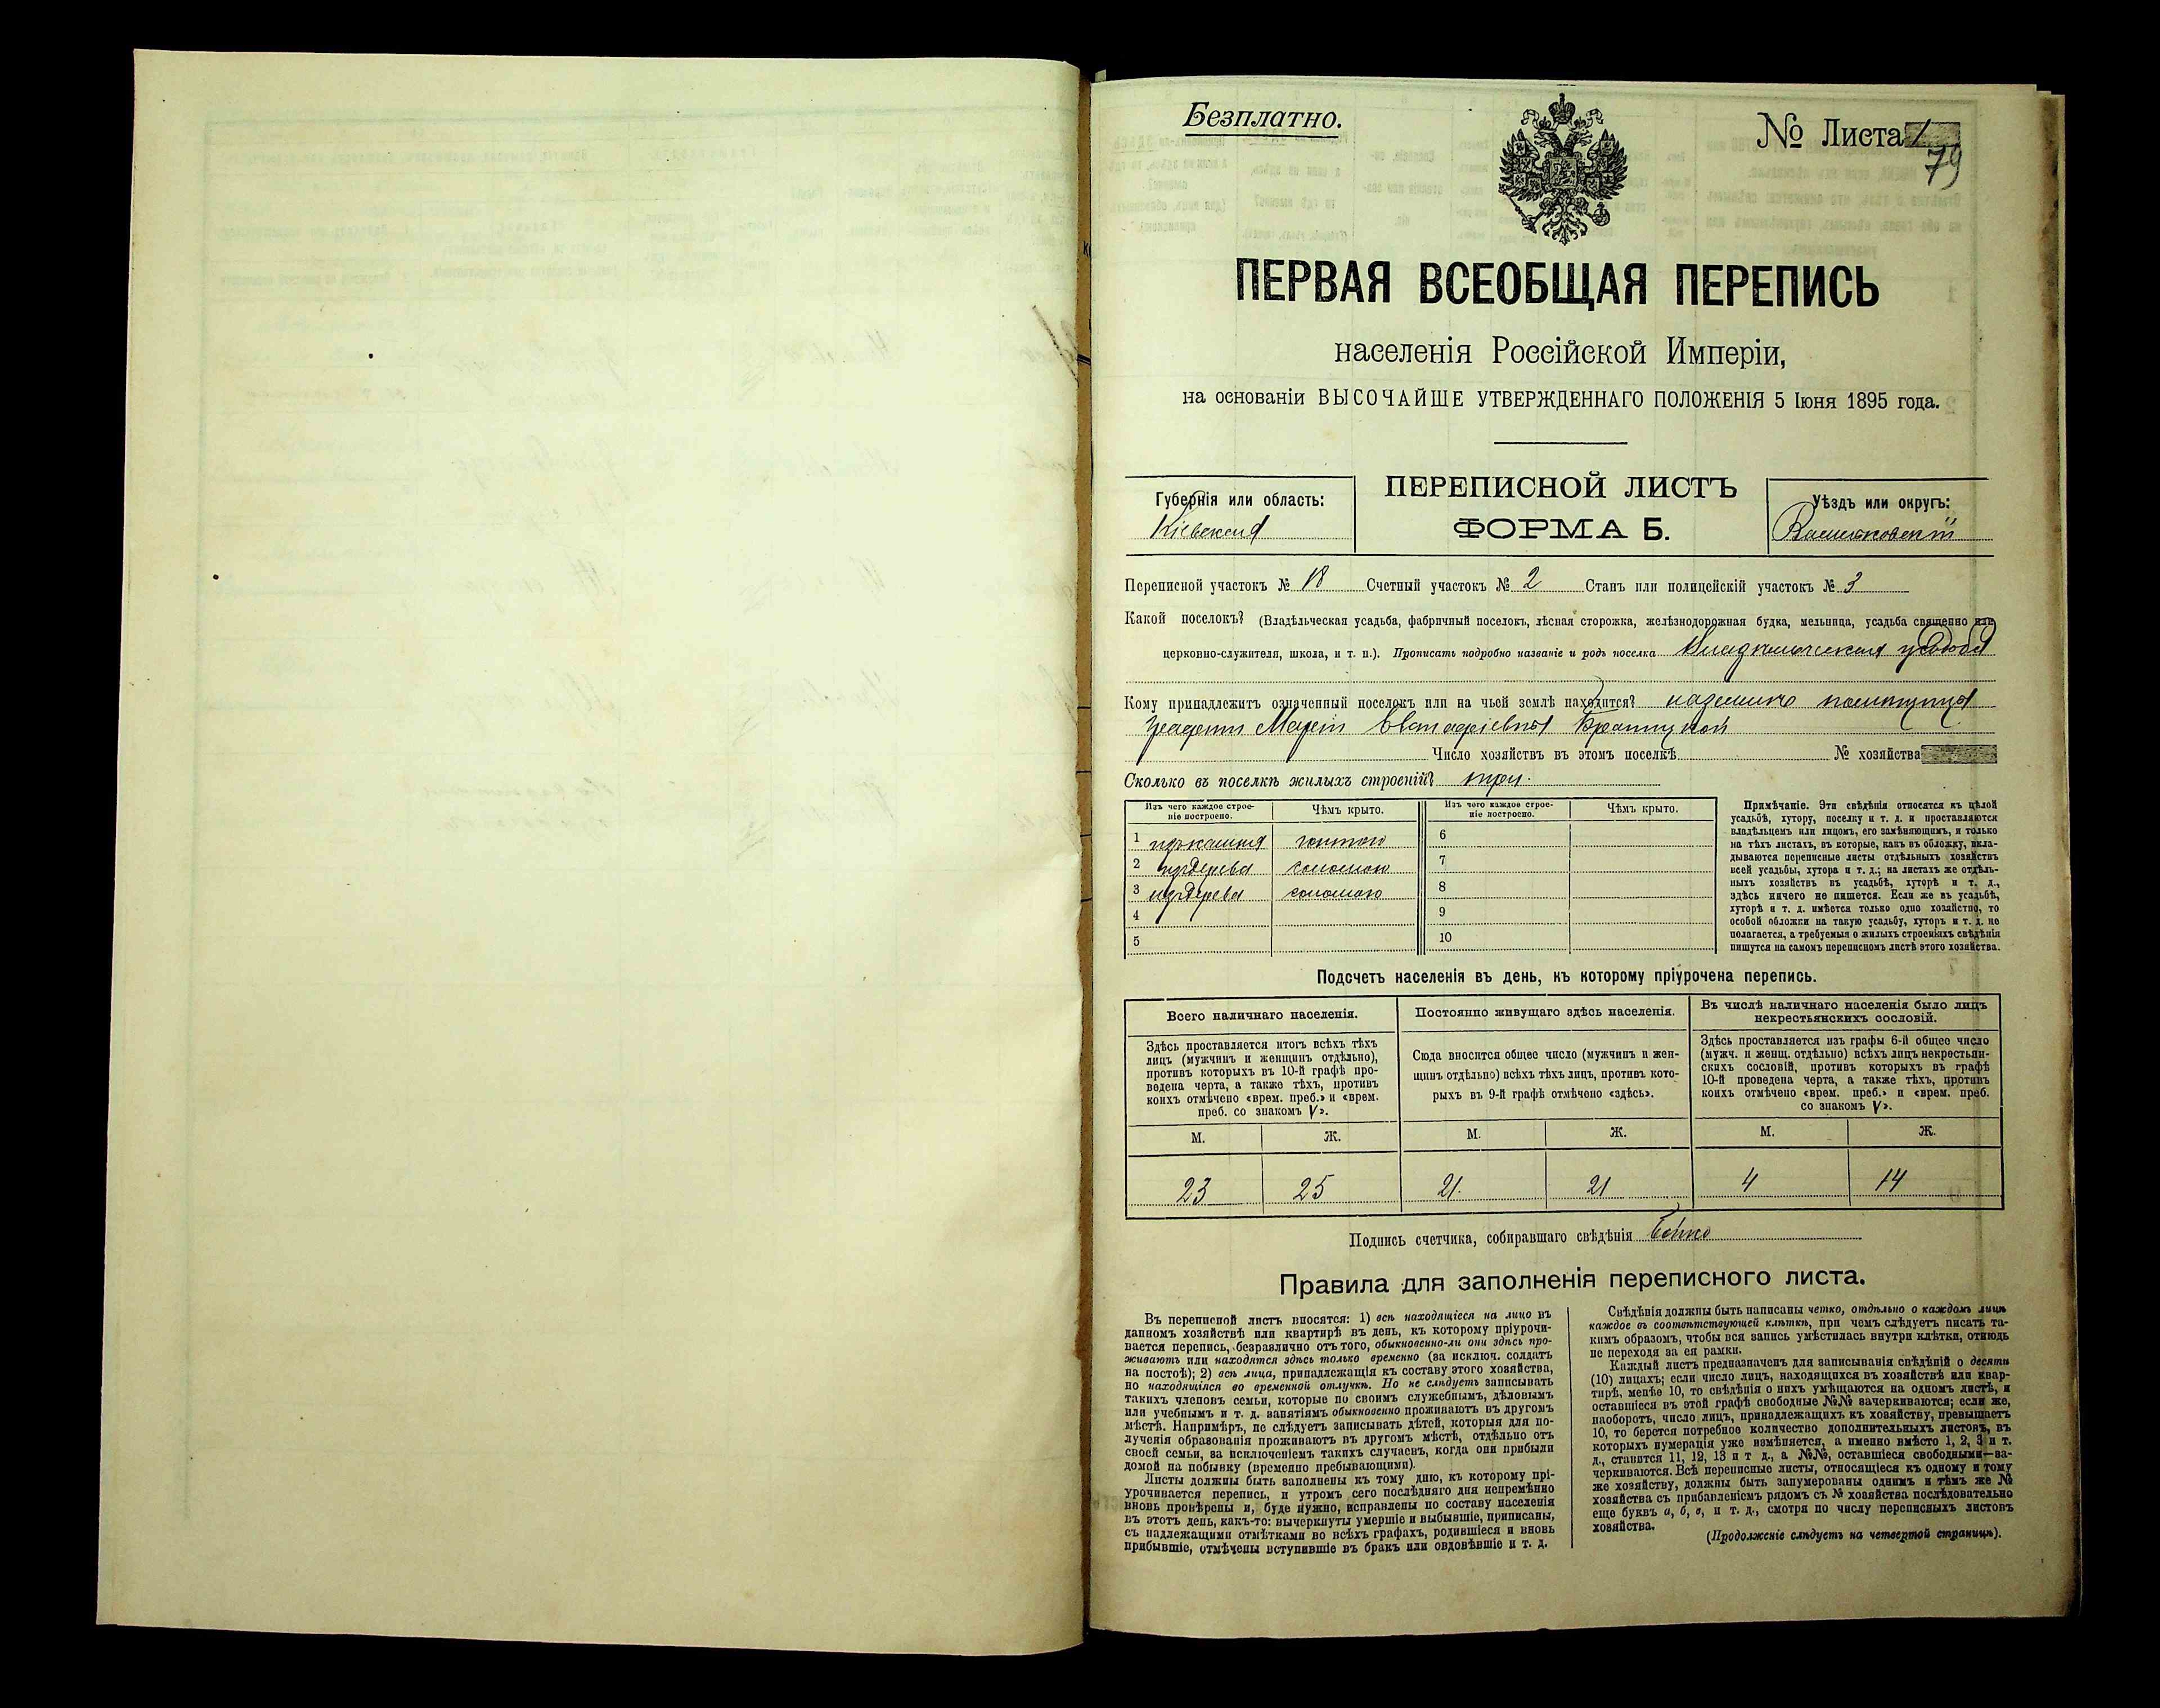 Безплатно.
№ Листа 1
79
ПЕРВАЯ ВСЕОБЩАЯ ПЕРЕПИСЬ
населенія Россійской Имперіи,
на основаніи ВЫСОЧАЙШЕ УТВЕРЖДЕННАГО ПОЛОЖЕНІЯ 5 Іюня 1895 года.
Губернія или область:
Кіевская
ПЕРЕПИСНОЙ ЛИСТЪ
ФОРМА Б.
Уѣздъ или округъ:
Васильковскій
Переписной участокъ № 18 Счетный участокъ № 2 Станъ или полицейскій участокъ № 3
Какой поселокъ? (Владѣльческая усадьба, фабричный поселокъ, лѣсная сторожка, желѣзнодорожная будка, мельница, усадьба священно или
церковно-служителя, школа, и т. п.). Прописать подробно названіе и родъ поселка Владѣльческая усадьба
Кому принадлежитъ означенный поселокъ или на чьей землѣ находится?
графини Маріи Евстафіевны Браницкой
Число хозяйствъ въ этомъ поселкѣ № хозяйства
Сколько въ поселкѣ жилыхъ строеній? три.
Изъ чего каждое строе-
ніе построено.
Чѣмъ крыто.
Изъ чего каждое строе-
ніе построено.
Чѣмъ крыто.
1 изъ камня гонтою 6
2 изъ дерева соломою 7
3 изъ дерева соломою 8
4 9
5 10
Примѣчаніе. Эти свѣдѣнія относятся къ цѣлой
усадьбѣ, хутору, поселку и т. д. и проставляются
владѣльцемъ или лицомъ, его замѣняющимъ, и только
на тѣхъ листахъ, въ которые, какъ въ обложку, вкла-
дываются переписные листы отдѣльныхъ хозяйствъ
всей усадьбы, хутора и т. д.; на листахъ же отдѣль-
ныхъ хозяйствъ въ усадьбѣ, хуторѣ и т. д.,
здѣсь ничего не пишется. Если же въ усадьбѣ,
хуторѣ и т. д. имѣется только одно хозяйство, то
особой обложки на такую усадьбу, хуторъ и т. д. не
полагается, а требуемыя о жилыхъ строеніяхъ свѣдѣнія
пишутся на самомъ переписномъ листѣ этого хозяйства.
Подсчетъ населенія въ день, къ которому пріурочена перепись.
Всего наличнаго населенія.
Здѣсь проставляется итогъ всѣхъ тѣхъ
лицъ (мужчинъ и женщинъ отдѣльно),
противъ которыхъ въ 10-й графѣ про-
ведена черта, а также тѣхъ, противъ
коихъ отмѣчено «врем. преб.» и «врем.
преб. со знакомъ V».
Постоянно живущаго здѣсь населенія.
Сюда вносится общее число (мужчинъ и жен-
щинъ отдѣльно) всѣхъ тѣхъ лицъ, противъ кото-
рыхъ въ 9-й графѣ отмѣчено «здѣсь».
Въ числѣ наличнаго населенія было лицъ
некрестьянскихъ сословій.
Здѣсь проставляется изъ графы 6-й общее число
(мужч. и женщ. отдѣльно) всѣхъ лицъ некрестьян-
скихъ сословій, противъ которыхъ въ графѣ
10-й проведена черта, а также тѣхъ, противъ
коихъ отмѣчено «врем. преб.» и «врем. преб.
со знакомъ V».
М. Ж. М. Ж. М. Ж.
23 25 21 21 4 14
Подпись счетчика, собиравшаго свѣдѣнія
Правила для заполненія переписного листа.
Въ переписной листъ вносятся: 1) всѣ находящіеся на лицо въ
данномъ хозяйствѣ или квартирѣ въ день, къ которому пріурочи-
вается перепись, безразлично отъ того, обыкновенно-ли они здѣсь про-
живаютъ или находятся здѣсь только временно (за исключ. солдатъ
на постоѣ); 2) всѣ лица, принадлежащія къ составу этого хозяйства,
но находящіяся во временной отлучкѣ. Но не слѣдуетъ записывать
такихъ членовъ семьи, которые по своимъ служебнымъ, дѣловымъ
или учебнымъ и т. д. занятіямъ обыкновенно проживаютъ въ другомъ
мѣстѣ. Напримѣръ, не слѣдуетъ записывать дѣтей, которыя для по-
лученія образованія проживаютъ въ другомъ мѣстѣ, отдѣльно отъ
своей семьи, за исключеніемъ такихъ случаевъ, когда они прибыли
домой на побывку (временно пребывающими).
Листы должны быть заполнены къ тому дню, къ которому прі-
урочивается перепись, и утромъ сего послѣдняго дня непремѣнно
вновь провѣрены и, буде нужно, исправлены по составу населенія
въ этотъ день, какъ-то: вычеркнуты умершіе и выбывшіе, приписаны,
съ надлежащими отмѣтками во всѣхъ графахъ, родившіеся и вновь
прибывшіе, отмѣчены вступившіе въ бракъ или овдовѣвшіе и т. д.
Свѣдѣнія должны быть написаны четко, отдѣльно о каждомъ лицѣ
каждое въ соотвѣтствующей клѣткѣ, при чемъ слѣдуетъ писать та-
кимъ образомъ, чтобы вся запись умѣстилась внутри клѣтки, отнюдь
не переходя за ея рамки.
Каждый листъ предназначенъ для записыванія свѣдѣній о десяти
(10) лицахъ; если число лицъ, находящихся въ хозяйствѣ или квар-
тирѣ, менѣе 10, то свѣдѣнія о нихъ умѣщаются на одномъ листѣ, и
оставшіеся въ этой графѣ свободные №№ зачеркиваются; если же,
наоборотъ, число лицъ, принадлежащихъ къ хозяйству, превышаетъ
10, то берется потребное количество дополнительныхъ листовъ, въ
которыхъ нумерація уже измѣняется, а именно вмѣсто 1, 2, 3 и т.
д., ставится 11, 12, 13 и т д., а №№, оставшіеся свободными—за-
черкиваются. Всѣ переписные листы, относящіеся къ одному и тому
же хозяйству, должны быть занумерованы однимъ и тѣмъ же №
хозяйства съ прибавленіемъ рядомъ съ № хозяйства послѣдовательно
еще буквъ а, б, в, и т. д., смотря по числу переписныхъ листовъ
хозяйства.
(Продолженіе слѣдуетъ на четвертой страницѣ).